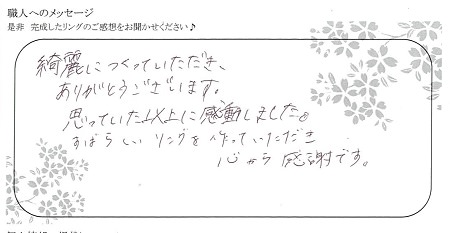 職人へのメッセージ
是非 完成したリングのご感想をお聞かせください♪
綺麗につくっていただき、
ありがとうございます。
思っていた以上に感動しました。
すばらしいリングを作っていただき
心から感謝です。